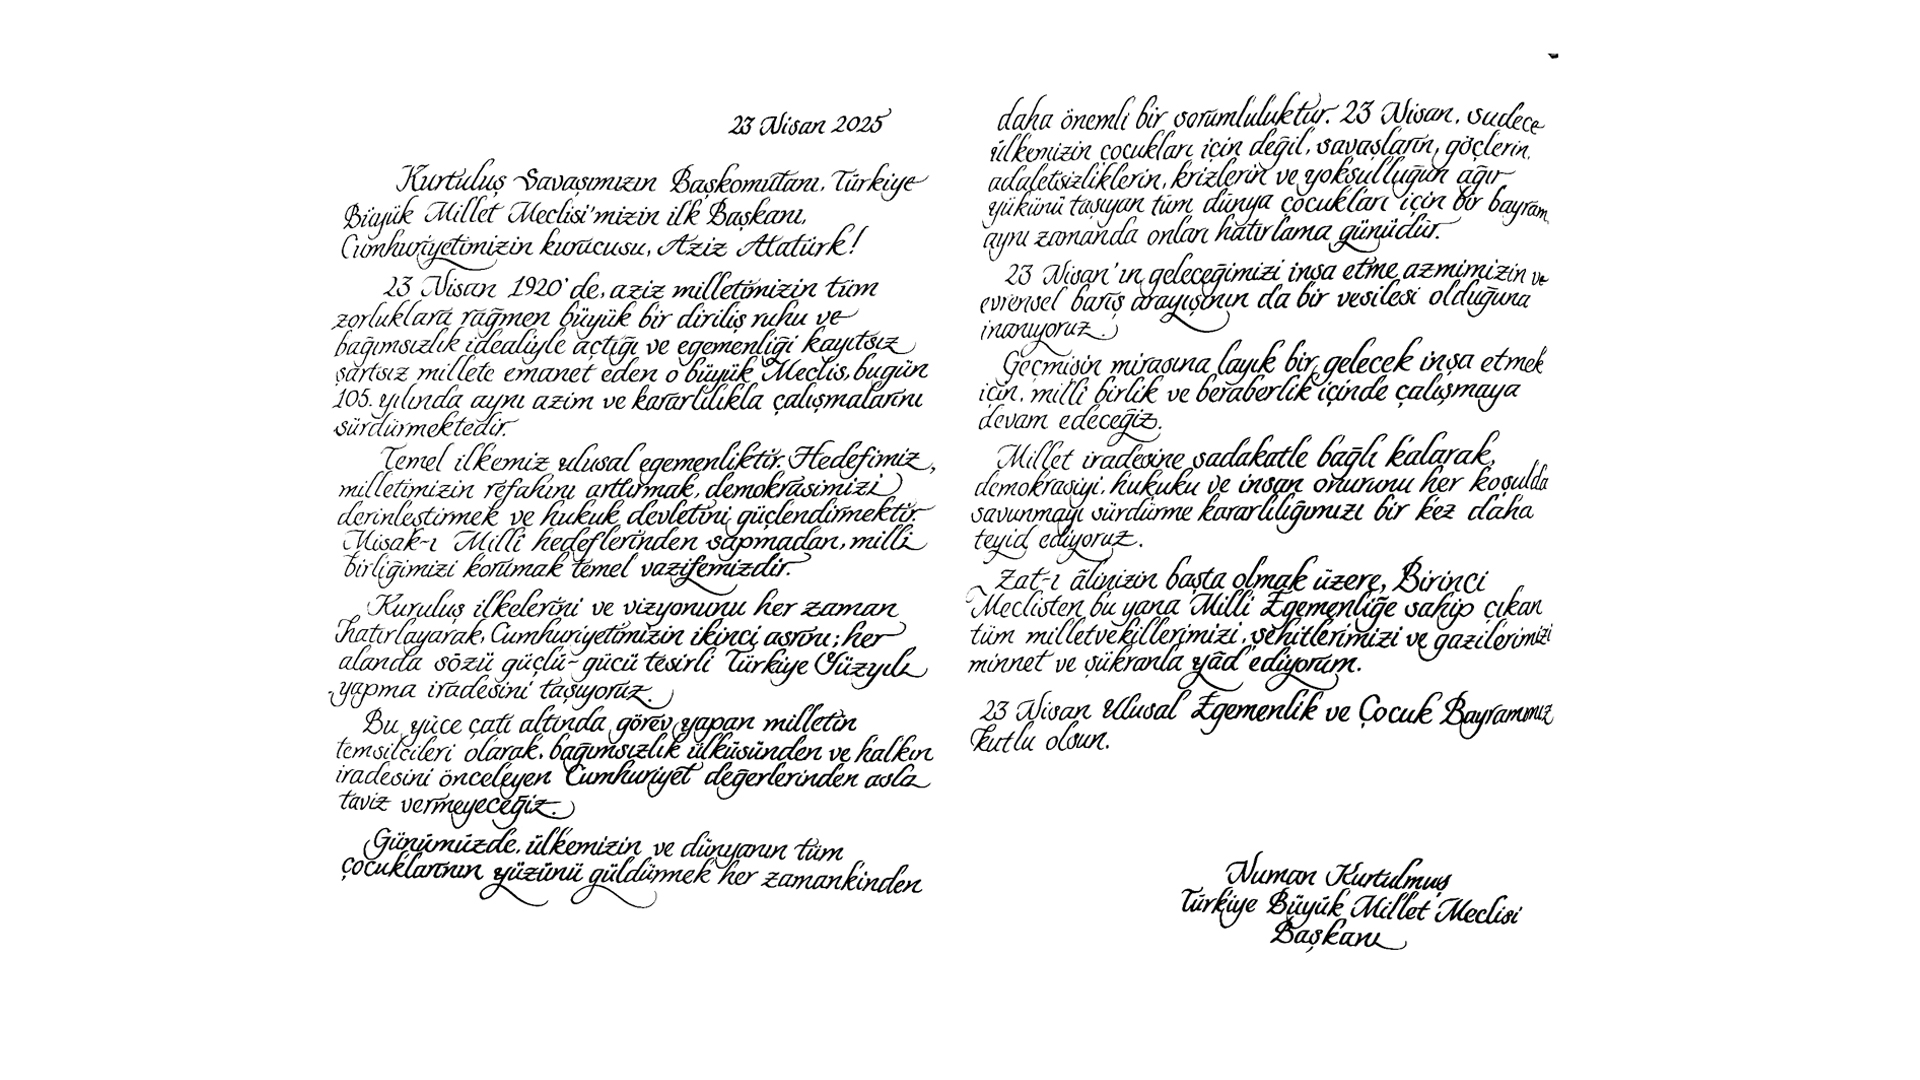 23 Nisan 2025
Kurtuluş Savaşımızın Başkomutanı, Türkiye
Büyük Millet Meclisi'mizin ilk Başkanı,
Cumhuriyetimizin kurucusu, Aziz Atatürk!
23 Nisan 1920'de, aziz milletimizin tüm
zorluklara rağmen büyük bir diriliş ruhu ve
bağımsızlık idealiyle açtığı ve egemenliği kayıtsız
şartsız millete emanet eden o büyük Meclis, bugün
105. yılında aynı azim ve kararlılıkla çalışmalarını
sürdürmektedir.
Temel ilkemiz ulusal egemenliktir. Hedefimiz,
milletimizin refahını arttırmak, demokrasimizi
derinleştirmek ve hukuk devletini güçlendirmektir.
Misak-ı Milli hedeflerinden sapmadan, milli
birliğimizi korumak temel vazifemizdir.
Kuruluş ilkelerini ve vizyonunu her zaman
hatırlayarak, Cumhuriyetimizin ikinci asrını; her
alanda sözü güçlü-gücü tesirli Türkiye Yüzyılı
yapma iradesini taşıyoruz.
Bu yüce çatı altında görev yapan milletin
temsilcileri olarak, bağımsızlık ülküsünden ve halkın
iradesini önceleyen Cumhuriyet değerlerinden asla
taviz vermeyeceğiz.
Günümüzde, ülkemizin ve dünyanın tüm
çocuklarının yüzünü güldürmek her zamankinden
daha önemli bir sorumluluktur. 23 Nisan, sudece
ülkemizin çocukları için değil, savaşların, göçlerin,
adaletsizliklerin, krizlerin ve yoksulluğun ağır
yükünü taşıyan tüm dünya çocukları için bir bayram,
aynı zamanda onları hatırlama günüdür.
23 Nisan'ın geleceğimizi inşa etme azmimizin ve
evrensel barış arayışının da bir vesilesi olduğuna
inanıyoruz.
Geçmişin mirasına layık bir gelecek inşa etmek
için, milli birlik ve beraberlik içinde çalışmaya
devam edeceğiz.
Millet iradesine sadakatle bağlı kalarak,
demokrasiyi, hukuku ve insan onurunu her koşulda
savunmayı sürdürme kararlılığımızı bir kez daha
teyid ediyoruz.
Zat-ı âlinizin başta olmak üzere, Birinci
Meclisten bu yana Milli Egemenliğe sahip çıkan
tüm milletvekillerimizi, şehitlerimizi ve gazilerimizi
minnet ve şükranla yâd ediyorum.
23 Nisan Ulusal Egemenlik ve Çocuk Bayramımız
kutlu olsun.
Numan Kurtulmuş
Türkiye Büyük Millet Meclisi
Başkanı